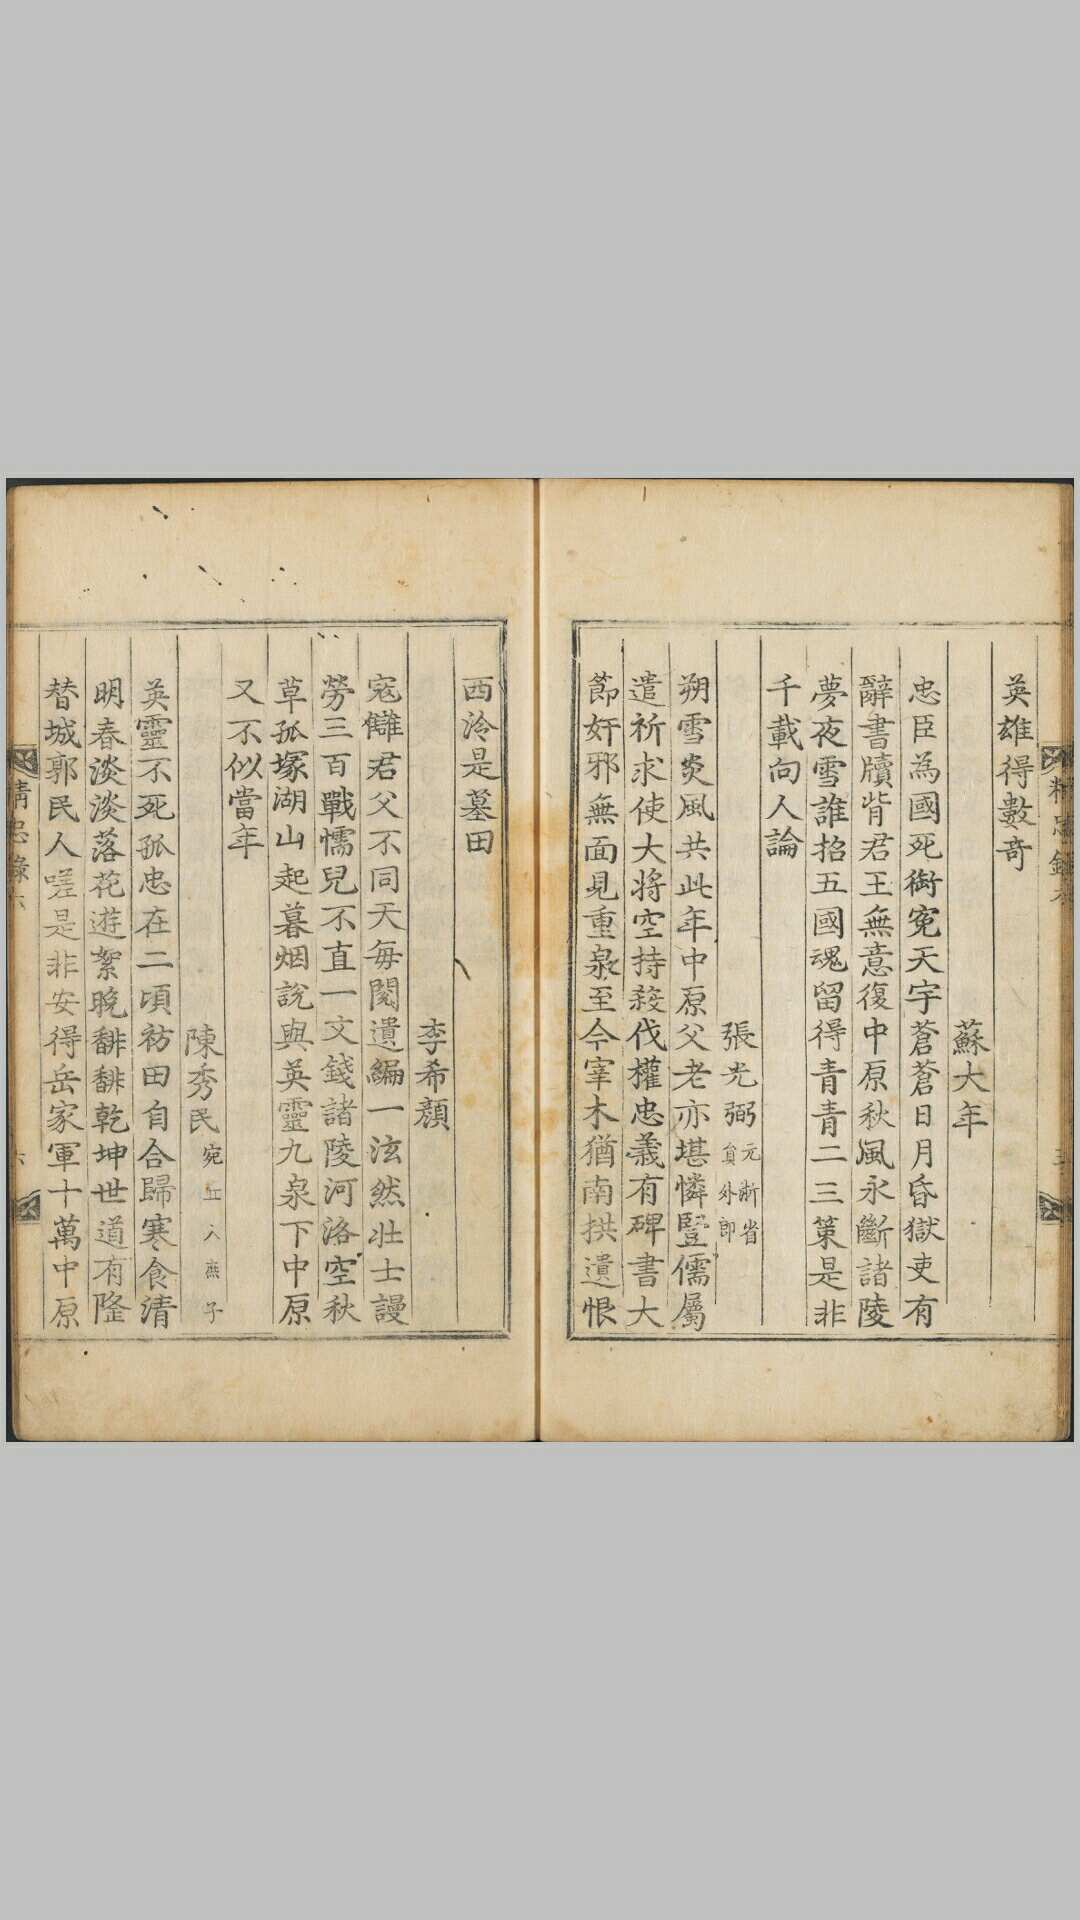 英雄得數奇
蘇大年
忠臣為國死銜寃天宇蒼蒼日月昏獄吏有
辭書牘背君王無意復中原秋風永斷諸陵
夢夜雪誰招五國魂留得青青二三策是非
千載向人論
張光弼元浙省員外郎
朔雪炎風共此年中原父老亦堪憐豎儒屬
遣祈求使大將空持殺伐權忠義有碑書大
節奸邪無面見重泉至今宰木猶南拱遺恨
西泠是墓田
李希顏
寇讎君父不同天每閱遺編一泫然壮士謾
勞三百戰懦兒不直一文錢諸陵河洛空秋
草孤塚湖山起暮烟說與英靈九泉下中原
又不似當年
陳秀民宛丘人燕子
英靈不死孤忠在二頃祊田自合歸寒食清
明春淡淡落花遊絮晩馡馡乾坤世道有隆
替城郭民人嗟是非安得岳家軍十萬中原
精忠錄六
六